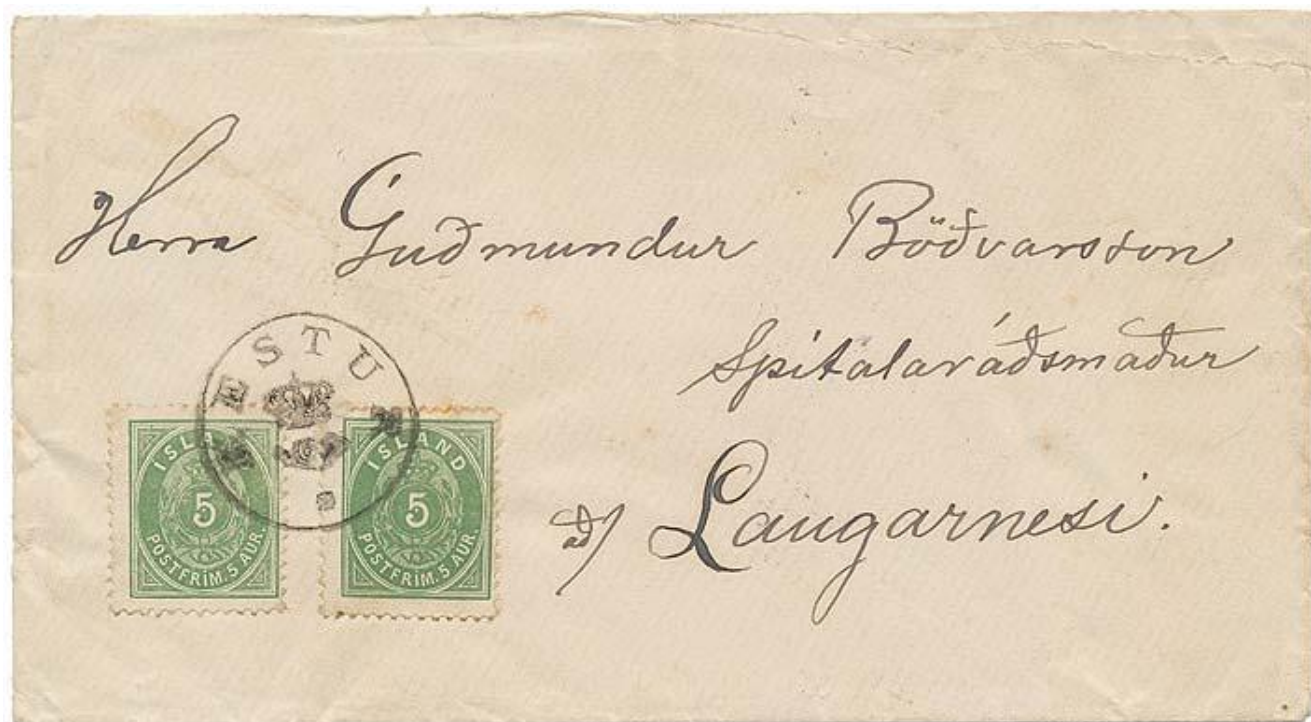 Herra Guðmundur Böðvarsson
Spítalaráðsmaður
að/ Laugarnesi.
ÍSLAND
5
POSTFRIM. 5 AUR.
ÍSLAND
5
POSTFRIM. 5 AUR.